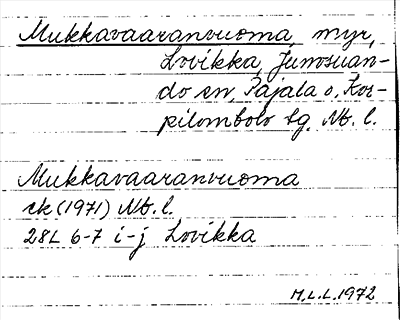 Mukkavaaranvuoma, myr,
Lovikka, Junosuan-
do sn, Pajala o, Kor-
pilombolo tg. Nb. l.
Mukkavaaranvuoma
ek (1971) Nb. l.
28L 6-7 i-j Lovikka
M.L.L. 1972